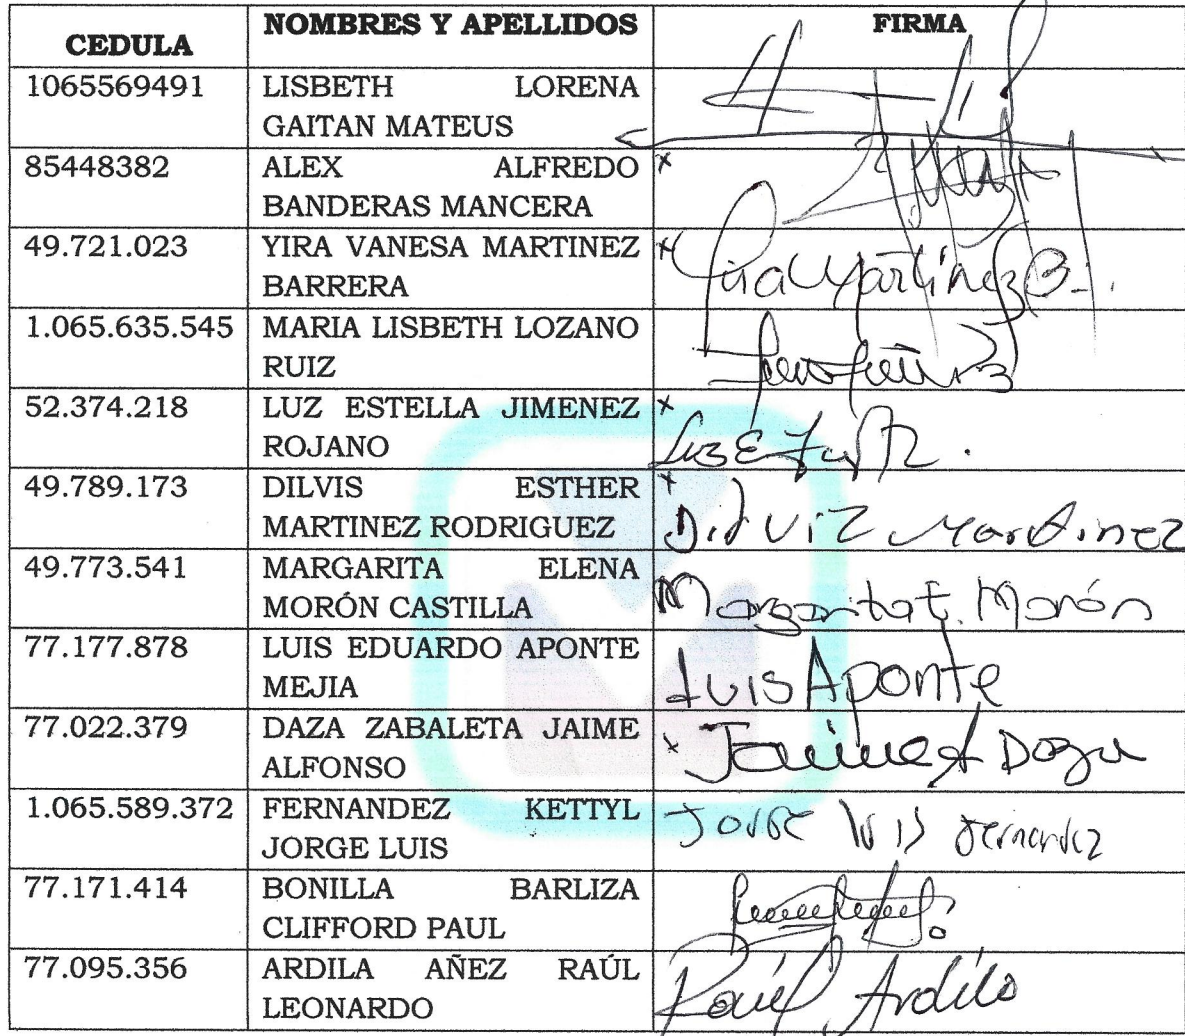 CEDULA NOMBRES Y APELLIDOS FIRMA
1065569491 LISBETH LORENA
GAITAN MATEUS
85448382 ALEX ALFREDO x
BANDERAS MANCERA
49.721.023 YIRA VANESA MARTINEZ x
BARRERA Yira Martinez B.
1.065.635.545 MARIA LISBETH LOZANO
RUIZ
52.374.218 LUZ ESTELLA JIMENEZ x
ROJANO Luz E
49.789.173 DILVIS ESTHER x
MARTINEZ RODRIGUEZ Dilviz Martinez
49.773.541 MARGARITA ELENA
MORÓN CASTILLA Margarita E. Morón
77.177.878 LUIS EDUARDO APONTE
MEJIA Luis Aponte
77.022.379 DAZA ZABALETA JAIME
ALFONSO x Jaime A Daza
1.065.589.372 FERNANDEZ KETTYL Jorge luis fernandez
JORGE LUIS
77.171.414 BONILLA BARLIZA
CLIFFORD PAUL
77.095.356 ARDILA AÑEZ RAÚL
LEONARDO Raúl Ardila